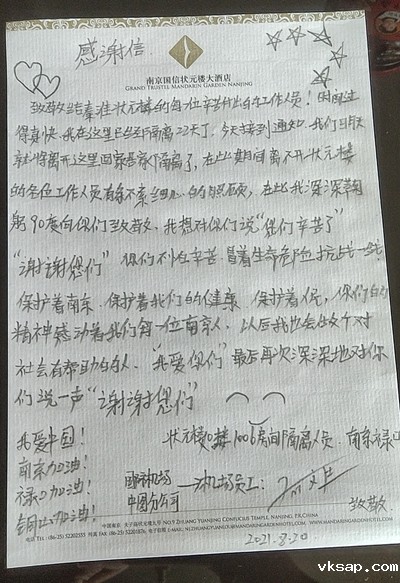 感谢信
南京国信状元楼大酒店
GRAND TRUSTEL MANDARIN GARDEN NANJING
致敬秦淮状元楼的每一位辛苦付出的工作人员！时间过
得真快，我在这里已经隔离22天了，今天接到通知，我们明天
就将离开这里回家居家隔离了，在此期间离不开状元楼
的各位工作人员有条不紊细心的照顾，在此我深深鞠
躬90度向你们致敬，我想对你们说“您们辛苦了”
“谢谢您们”你们不怕辛苦，冒着生命危险抗战一线
保护着南京，保护着我们的健康，保护着民，你们的
精神感动着我们每一位南京人，以后我也会做个对
社会有帮助的人，“我爱你们”最后再次深深地对你
们说一声“谢谢您们”
我爱中国！
状元楼 1006房间隔离人员，南京禄口
南京加油！
禄口加油！
国际机场
中国分公司
机场员工：
铜山加油！
致敬
中国南京 夫子庙状元境9号 NO.9 ZHUANG YUANJING CONFUCIUS TEMPLE, NANJING, P.R.CHINA
2021.8.20
vksap.com